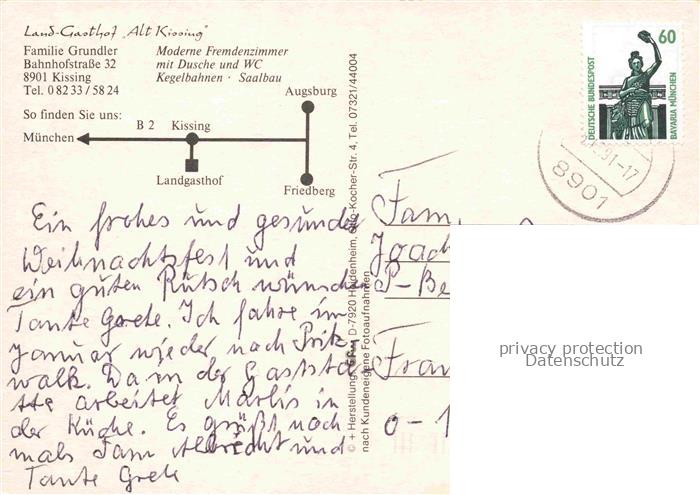 Land-Gasthof „Alt Kissing"
Familie Grundler
Bahnhofstraße 32
8901 Kissing
Tel. 0 82 33 / 58 24
Moderne Fremdenzimmer
mit Dusche und WC
Kegelbahnen · Saalbau
So finden Sie uns:
Augsburg
München
B 2
Kissing
Landgasthof
Friedberg
Ein frohes und gesundes
Weihnachtsfest und
ein guten Rutsch wünscht
Tante Grete. Ich fahre im
Januar wieder nach Pritz-
walk. Da in der Gaststä-
tte arbeitet Marlis in
der Küche. Es grüßt noch
mals Fam Albrecht und
Tante Grete
© + Herstellung: D-7920 Heidenheim, Otto-Kocher-Str. 4, Tel. 07321/44004
nach Kundeneigene Fotoaufnahmen
60
DEUTSCHE BUNDESPOST
BAVARIA MÜNCHEN
91-17
8901
Fam
Joach
P-Be
Fran
0-1
privacy protection
Datenschutz